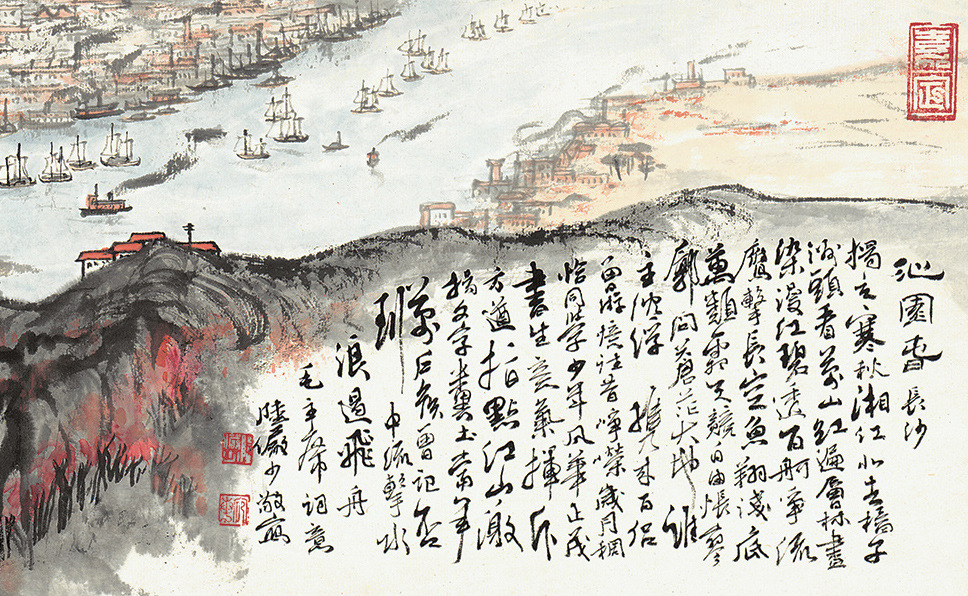 沁園春 長沙
獨立寒秋湘江北去橘子
洲頭看萬山紅遍層林盡
染漫江碧透百舸爭流
鷹擊長空魚翔淺底
萬類霜天競自由悵寥
廓問蒼茫大地誰
主沉浮 攜來百侶
曾游憶往昔崢嶸歲月稠
恰同學少年風華正茂
書生意氣揮斥
方遒指點江山激
揚文字糞土當年
萬户侯曾記否
到中流擊水
浪遏飛舟
毛主席詞意
陸儼少敬寫